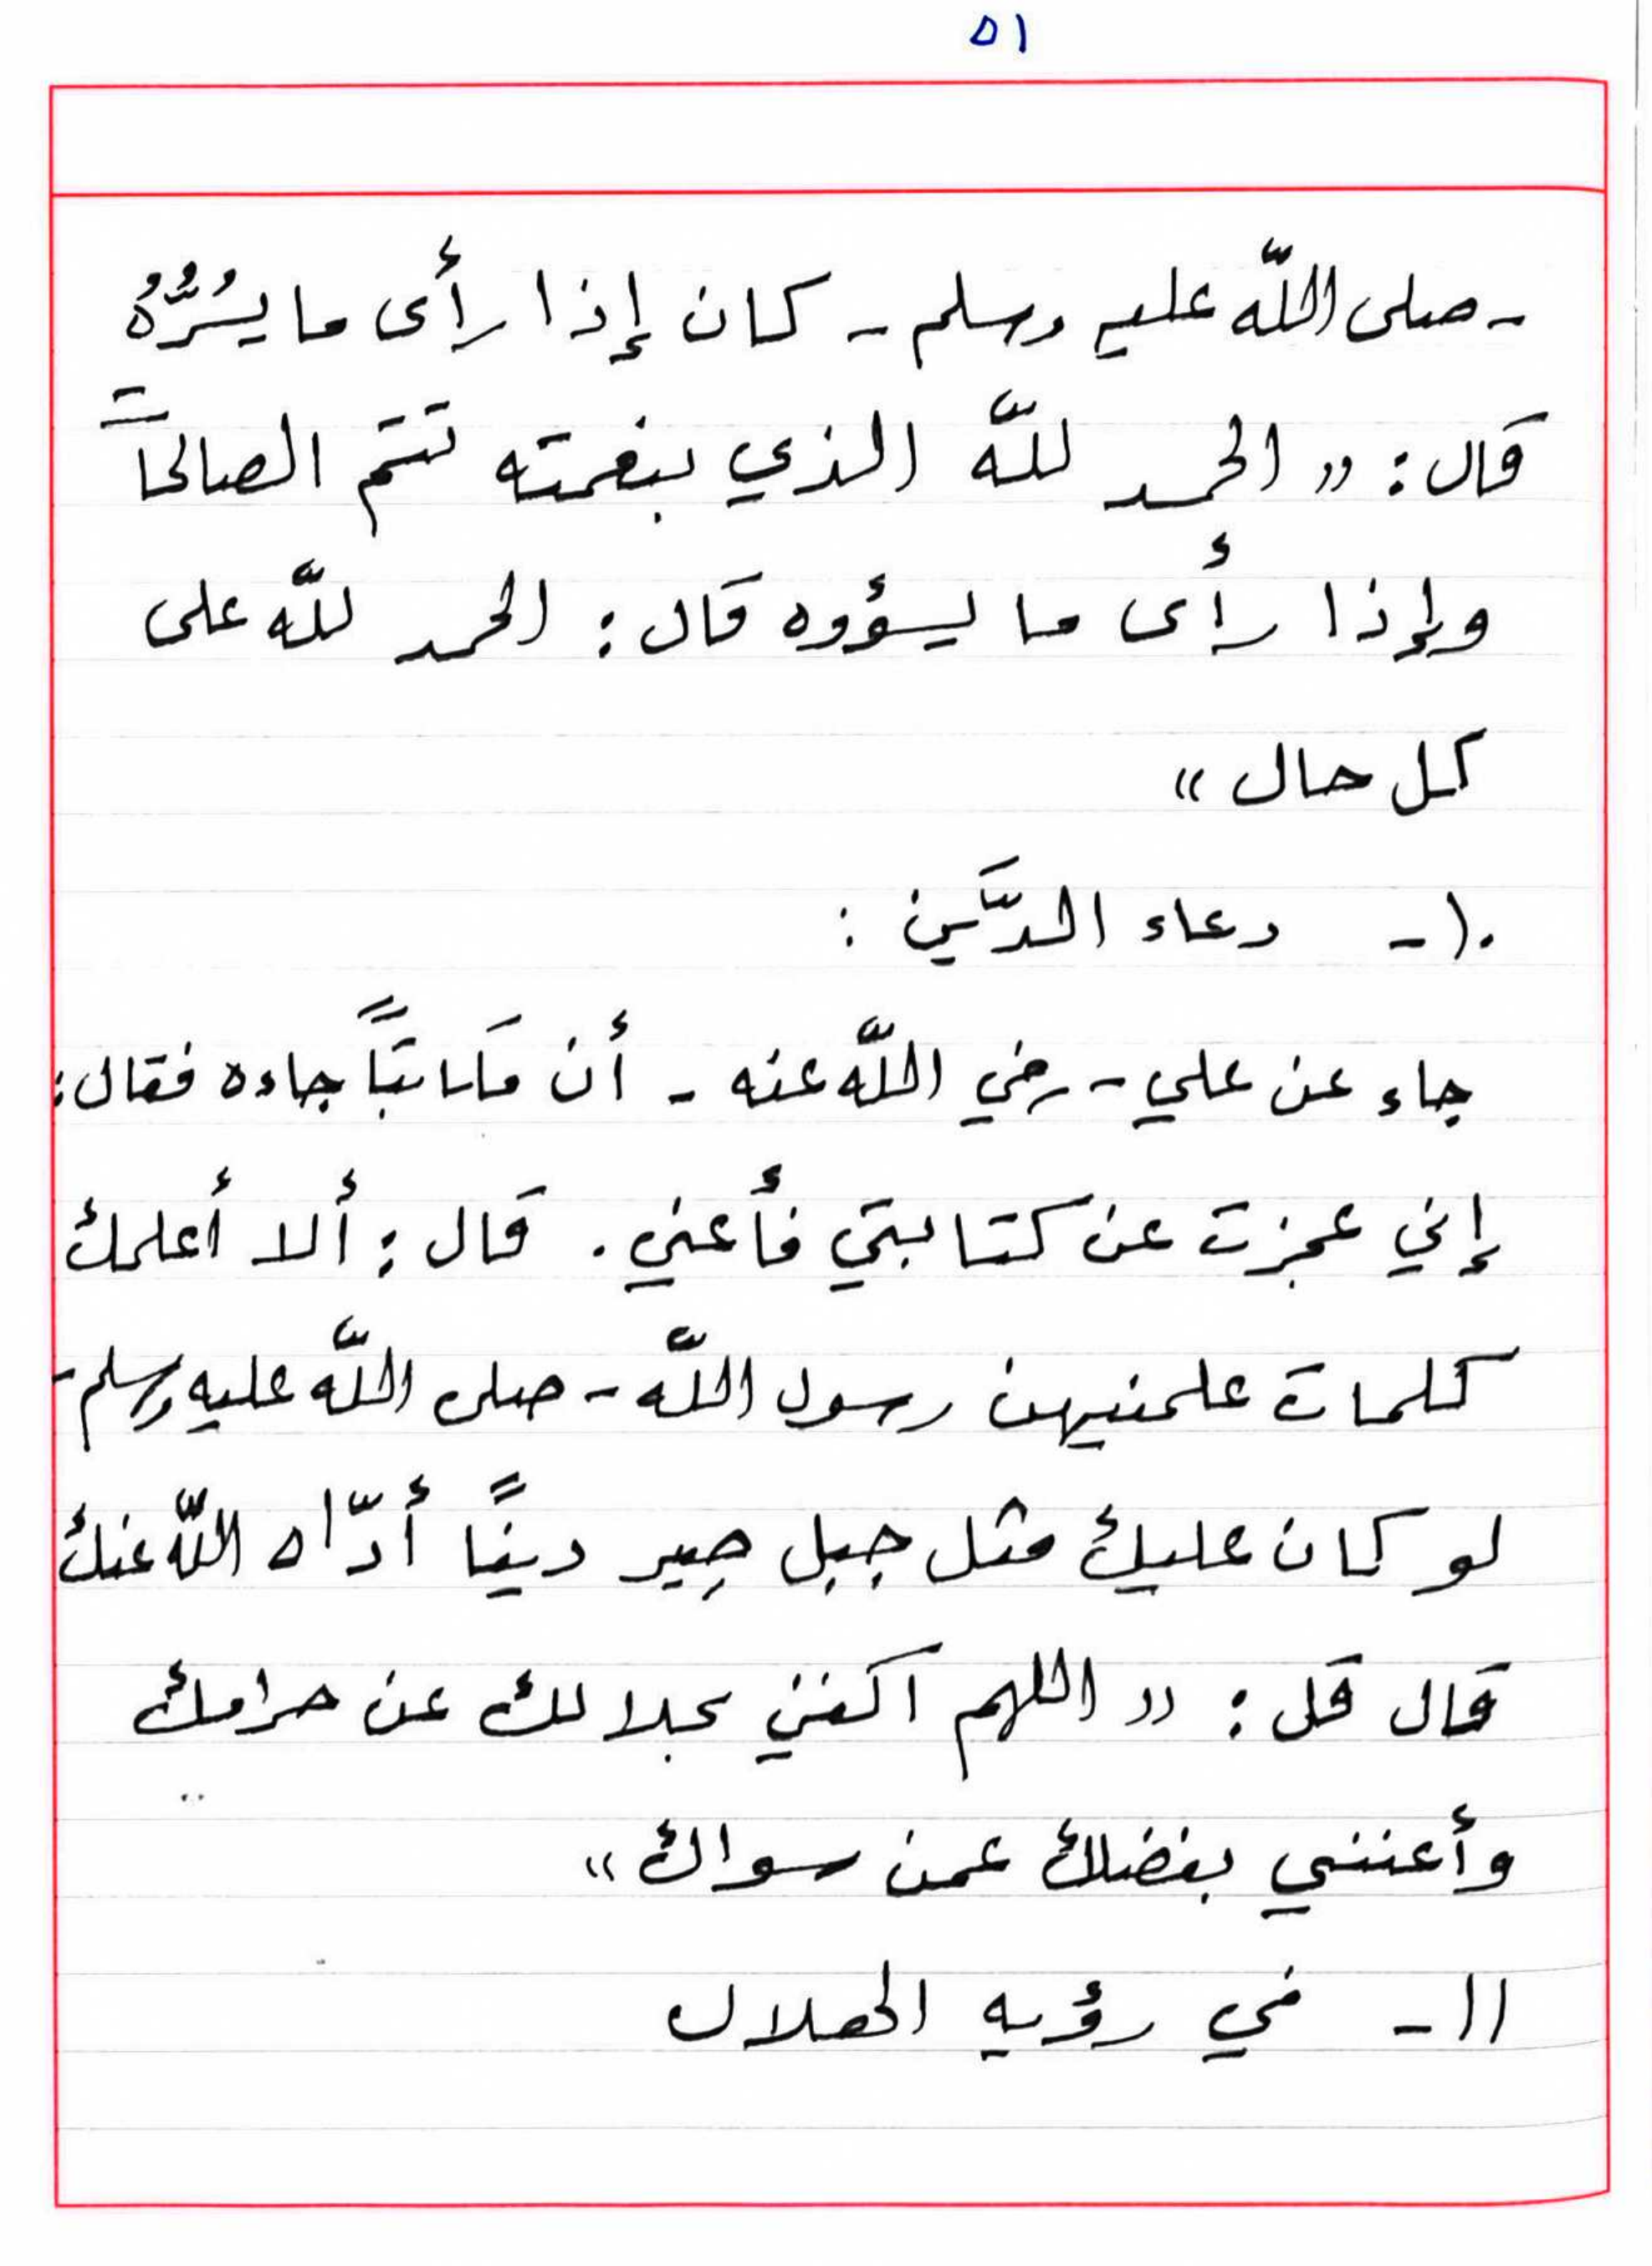 ٥١
- صلى اللّه عليه وسلم - كان إذا رأى ما يسُرُّهُ
قال : « الحمد للّه الذي بنعمته تتم الصالحاتَ
وإذا رأى ما يسؤوه قال : الحمد للّه على
كل حال »
١٠- دعاء الدَّين :
جاء عن علي - رضي اللّه عنه - أن مَكاتبًا جاءه فقال :
إني عجزت عن كتابتي فأعني . قال : ألا أعلمك
كلمات علمنيهن رسول اللّه - صلى اللّه عليه وسلم -
لو كان عليك مثل جبل صِير دينًا أدّاه اللّه عنك
قال قل : « اللهم اكفني بحلالك عن حرامك
وأعننني بفضلك عمن سواك »
١١- في رؤيه الهلال